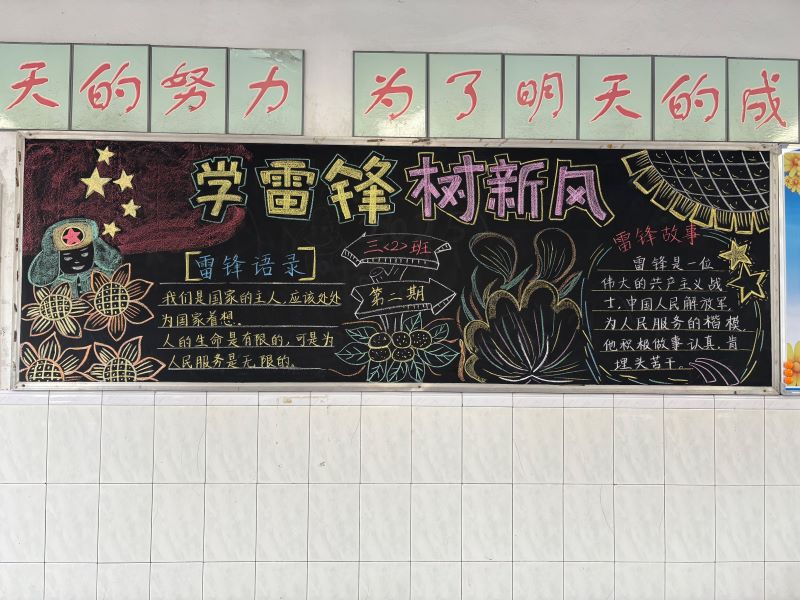 天的努力 为了明天的成
学雷锋树新风
雷锋语录
我们是国家的主人,应该处处
为国家着想。
人的生命是有限的,可是为
人民服务是无限的。
三<2>班
第二期
雷锋故事
雷锋是一位
伟大的共产主义战
士,中国人民解放军
为人民服务的楷模,
他积极做事认真,肯
埋头苦干。